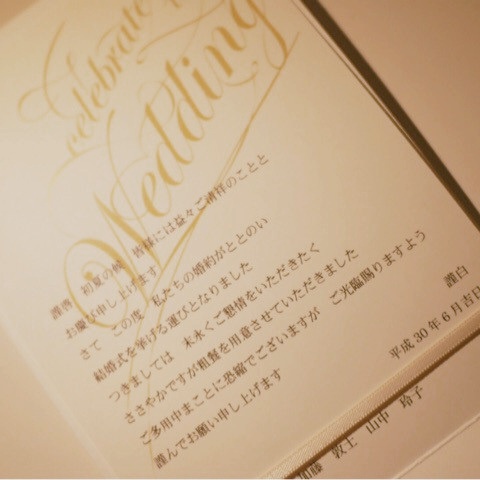 Celebrate
Wedding
謹啓 初夏の候 皆様には益々ご清祥のことと
お慶び申し上げます
さて この度 私たちの婚約がととのい
結婚式を挙げる運びとなりました
つきましては 末永くご懇情をいただきたく
ささやかですが粗餐を用意させていただきました
ご多用中まことに恐縮でございますが ご光臨賜りますよう
謹んでお願い申し上げます
謹白
平成30年6月吉日
加藤 敦士 山中 玲子